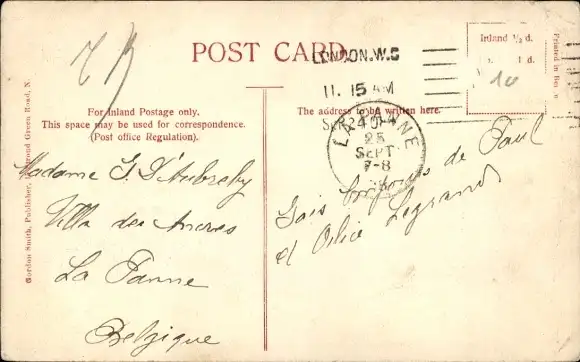 POST CARD
LONDON.W.C
11. 15 AM
LA PANNE
25
SEPT
7-8
Inland ½ d.
Printed in
For Inland Postage only.
This space may be used for correspondence.
(Post office Regulation).
The address to be written here.
Gordon Smith, Publisher, Green Road, N.
Madame G. D'Aubreby
Villa des Ancres
La Panne
Belgique
Gais bonjours de Paul
et Alice Legrand